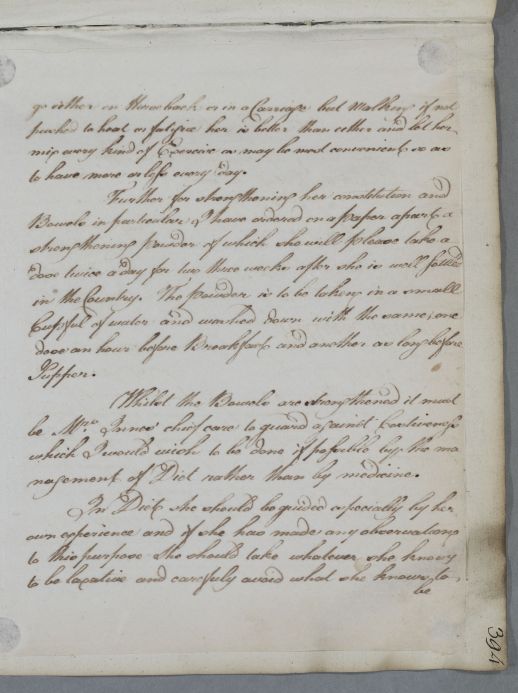 go either on Horseback or in a Carriage but Walking if not
pushed to heat or fatigue her is better than either and let her
mix every kind of Exercise as may be most convenient so as
to have more or less every day.
Further for strengthening her constitution and
Bowels in particular I have ordered on a paper apart a
strengthening powder of which she will please take a
dose twice a day for two three weeks after she is well settled
in the Country. The powder is to be taken in a small
Cupful of water and washed down with the same; one
dose an hour before Breakfast and another as long before
Supper.
Whilst the Bowels are strengthened it must
be Mrs. chief care to guard against Costiveness
which I would wish to be done if possible by the ma
nagement of Diet rather than by medicine.
In Diet she should be guided especially by her
own experience and if she has made any observations
to this purpose she should take whatever she knows
to be laxative and carefully avoid what she knows to
be
394